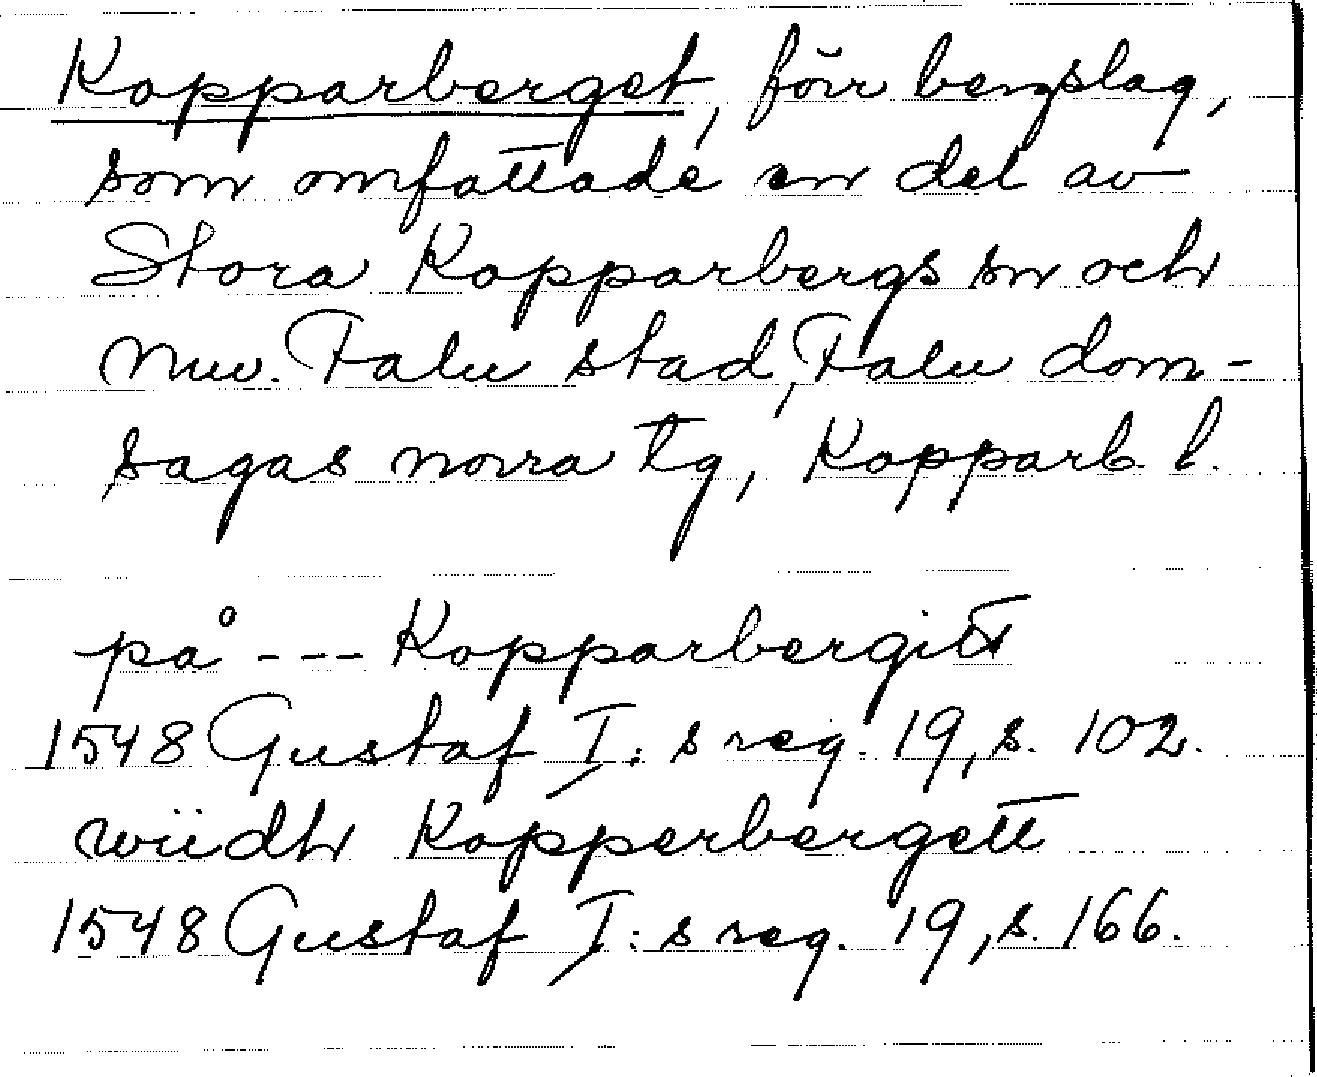 Kopparberget, förr bergslag,
som omfattade en del av
Stora Kopparbergs sn och
nuv. Falu stad, Falu dom-
sagas norra tg, Kopparb. l.
på --- Kopparbergitt
1548 Gustaf I:s reg. 19, s. 102.
wiidh Kopperbergett
1548 Gustaf I:s reg. 19, s. 166.